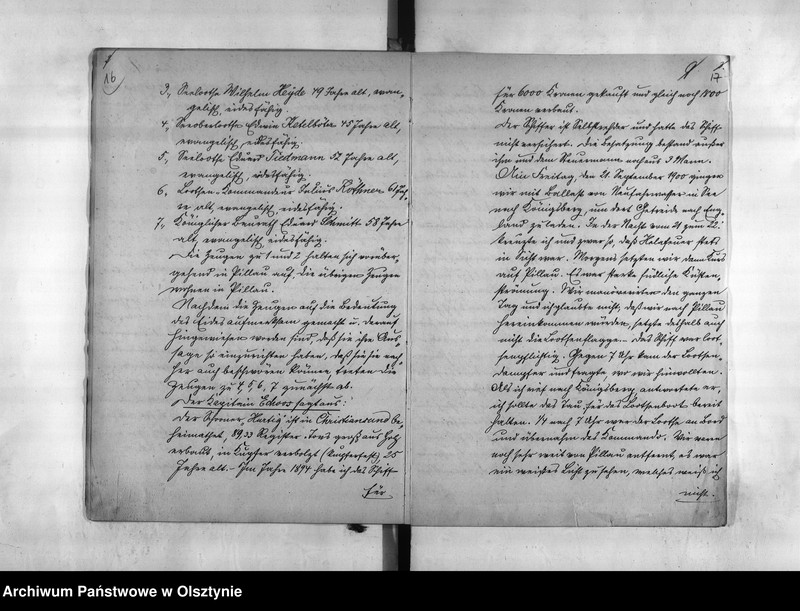 16
3, Seelootse Wilhelm Heyde 49 Jahre alt, evan-
gelisch, eidesfähig.
4, Seeoberlootse Edwin 45 Jahre alt,
evangelisch, eidesfähig.
5, Seelootse Eduard Tiedtmann 52 Jahre alt,
evangelisch, eidesfähig.
6, Lootsen-Kommandeur Julius Köthner 61 Jah-
re alt, evangelisch, eidesfähig.
7, Königlicher Baurath Eduard Schmitt 58 Jahre
alt, evangelisch, eidesfähig.
Die Zeugen zu 1 und 2 halten sich vorüber-
gehend in Pillau auf, die übrigen Zeugen
wohnen in Pillau.
Nachdem die Zeugen auf die Bedeutung
des Eides aufmerksam gemacht u. darauf
hingewiesen worden sind, daß sie ihre Aus-
sage so einzurichten haben, daß sie sie nach-
her auch beschwören können, treten die
Zeugen zu 5 6, 7 zunächst ab.
Der Kapitain sagt aus:
Der Schoner "Hertig" ist in Christiansand be-
heimathet, 89,33 Register-Tons groß aus Holz
erbaut, in Kupfer verbolzt (kupferfest), 25
Jahre alt. - Im Jahre 1894 habe ich das Schiff
für
17
für 6000 Kronen gekauft und gleich noch 1800
Kronen verbaut.
Der Schiffer ist Selbstrheder und hatte das Schiff
nicht versichert. Die Besatzung bestand außer
ihm und dem Steuermann noch aus 3 Mann.
Am Freitag, den 21. September 1900 gingen
wir mit Ballast von Neufahrwasser in See
nach Königsberg, um dort Getreide nach Eng-
land zu laden. In der Nacht vom 21 zum 22.
kreuzte ich und zwar so, daß Helafeuer stets
in Sicht war. Morgens setzten wir dann Kurs
auf Pillau. Es war starke südliche Küsten-
strömung. Wir manövrirten den ganzen
Tag und ich glaubte nicht, daß wir nach Pillau
hereinkommen würden, setzte deshalb auch
nicht die Lootsenflagge. - Das Schiff war loot-
senpflichtig. Gegen 7 Uhr kam der Lootsen-
dampfer und fragte wo wir hinwollten.
Als ich rief nach Königsberg antwortete er,
ich sollte das Tau für das Lootsenboot bereit
halten. 1/4 nach 7 Uhr war der Lootse an Bord
und übernahm das Kommando. Wir waren
noch sehr weit von Pillau entfernt, es war
ein weißes Licht zu sehen, welches weiß ich
nicht.
Archiwum Państwowe w Olsztynie